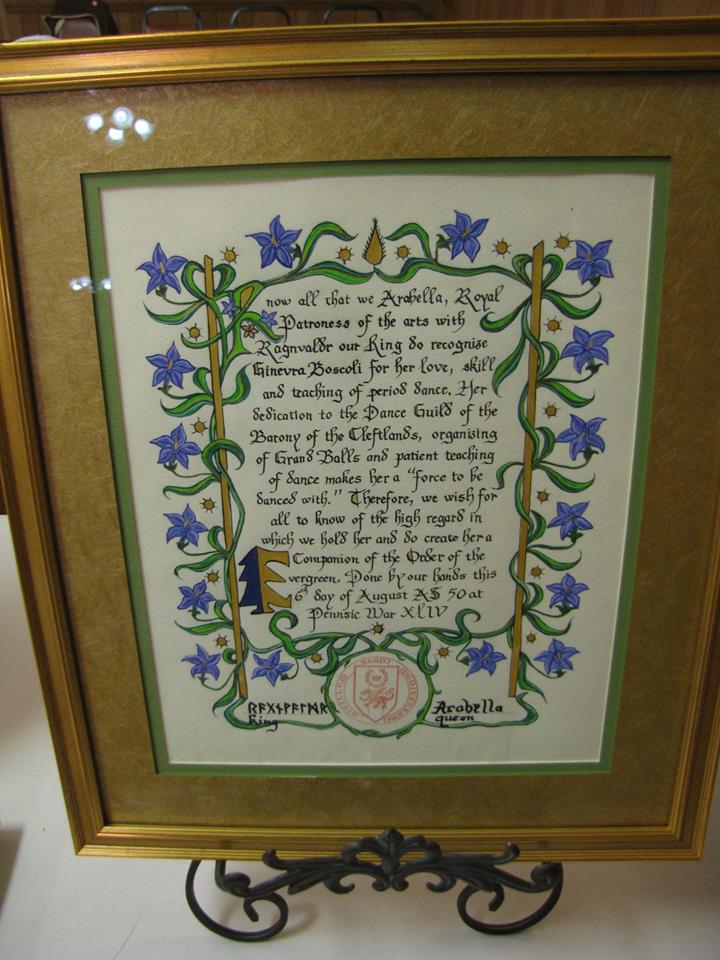 Know all that we Arabella, Royal
Patroness of the arts with
Ragnvaldr our King do recognize
Ginevra Boscoli for her love, skill
and teaching of period dance. Her
dedication to the Dance Guild of the
Barony of the Cleftlands, organizing
of Grand Balls and patient teaching
of dance makes her a "force to be
danced with." Therefore, we wish for
all to know of the high regard in
which we hold her and do create her a
Companion of the Order of the
Evergreen. Done by our hands this
6th day of August AS 50 at
Pennsic War XLIV
ᚱᚨᚷᚾᚹᚨᛚᛞᚱ
King
Arabella
queen